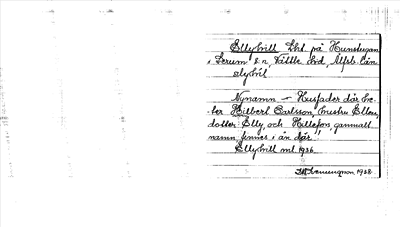 Ellyhill Lht på Hunstugan
i Lerum s:n Vättle hd, Älfsb. län
elyhil
Nynamn – Husfader där he-
ter Hilbert Carlsson, hustru Ellen,
dotter Elly, och Hillefors, gammalt
namn, finnes i ån där.
Ellyhill ml 1936.
1938